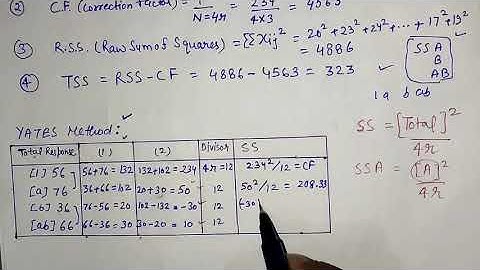 ② C.F. (Correction Factor) = 1/N=4r = 234/4×3 = 4563
③ R.S.S. (Raw Sum of Squares) = ΣΣXij² = 20² + 23² + 24² + ... + 17² + 19²
= 4886
④ TSS = RSS - CF = 4886 - 4563 = 323 ✓
SSA
B
AB
1 a b ab
YATES Method:
Total Response (1) (2) Divisor SS
[1] 56 56+76=132 132+102=234 4r=12 234²/12=CF
[a] 76 36+66=102 20+30=50 12 50²/12 = 208.33
[b] 36 76-56=20 102-132=-30 12 (-30
[ab] 66 66-36=30 30-20=10 12
SS = [Total]²/4r
SSA = [A]²/4r